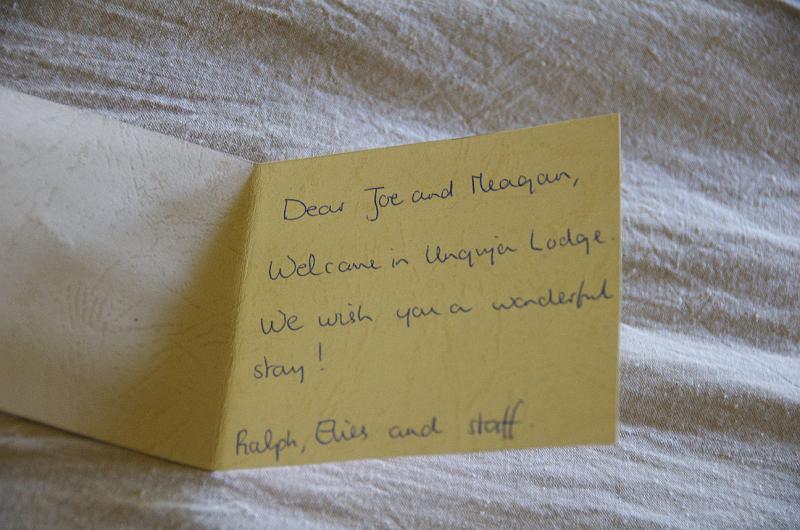 Dear Joe and Meagan,
Welcome in Unguja Lodge.
We wish you a wonderful
stay!
Ralph, Elies and staff.